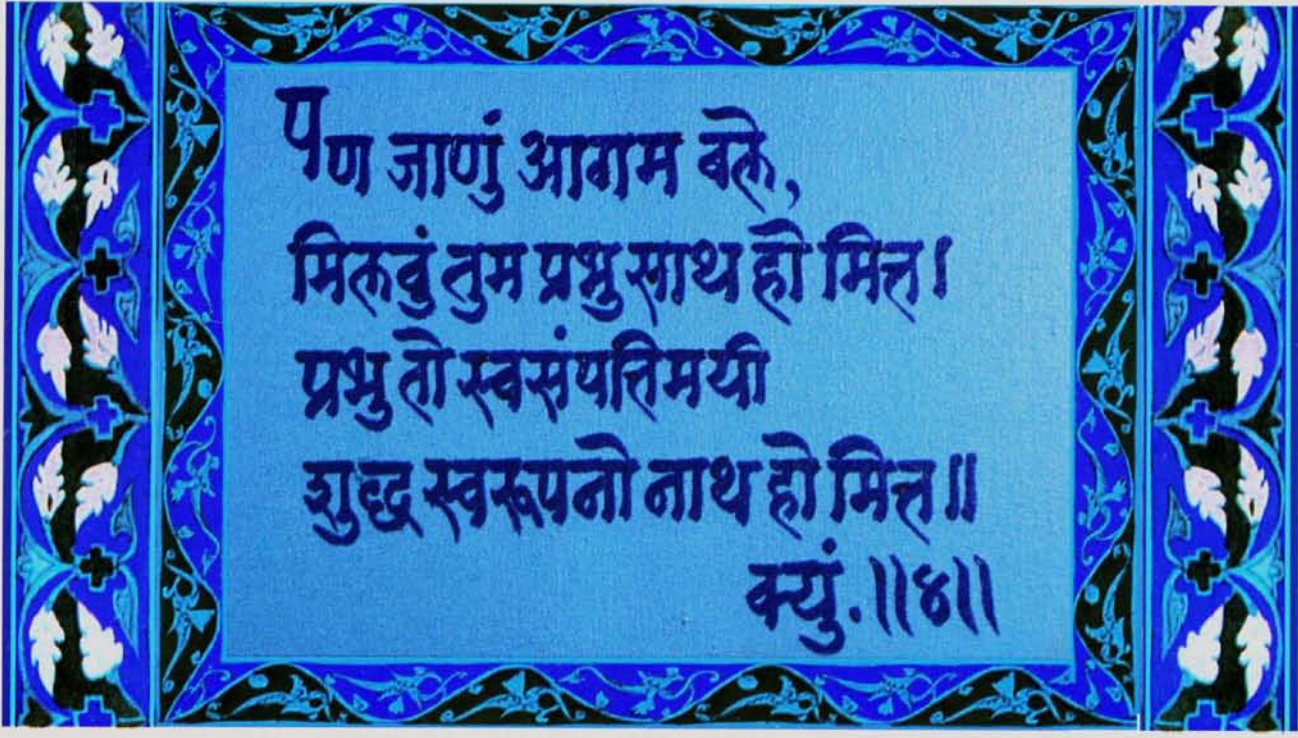 पण जाणुं आगम बले,
मिलवुं तुम प्रभु साथ हो मित्त।
प्रभु तो स्वसंपत्तिमयी
शुद्ध स्वरूपनो नाथ हो मित्त॥
क्युं.॥४॥